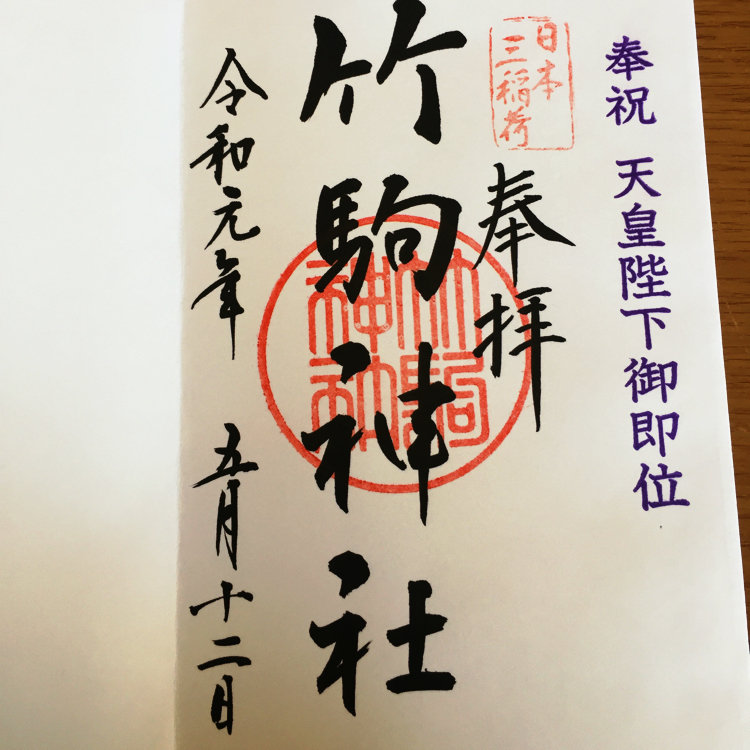 奉祝 天皇陛下御即位
日本
三稲荷
奉拝
竹駒神社
竹駒
神社
令和元年 五月十二日